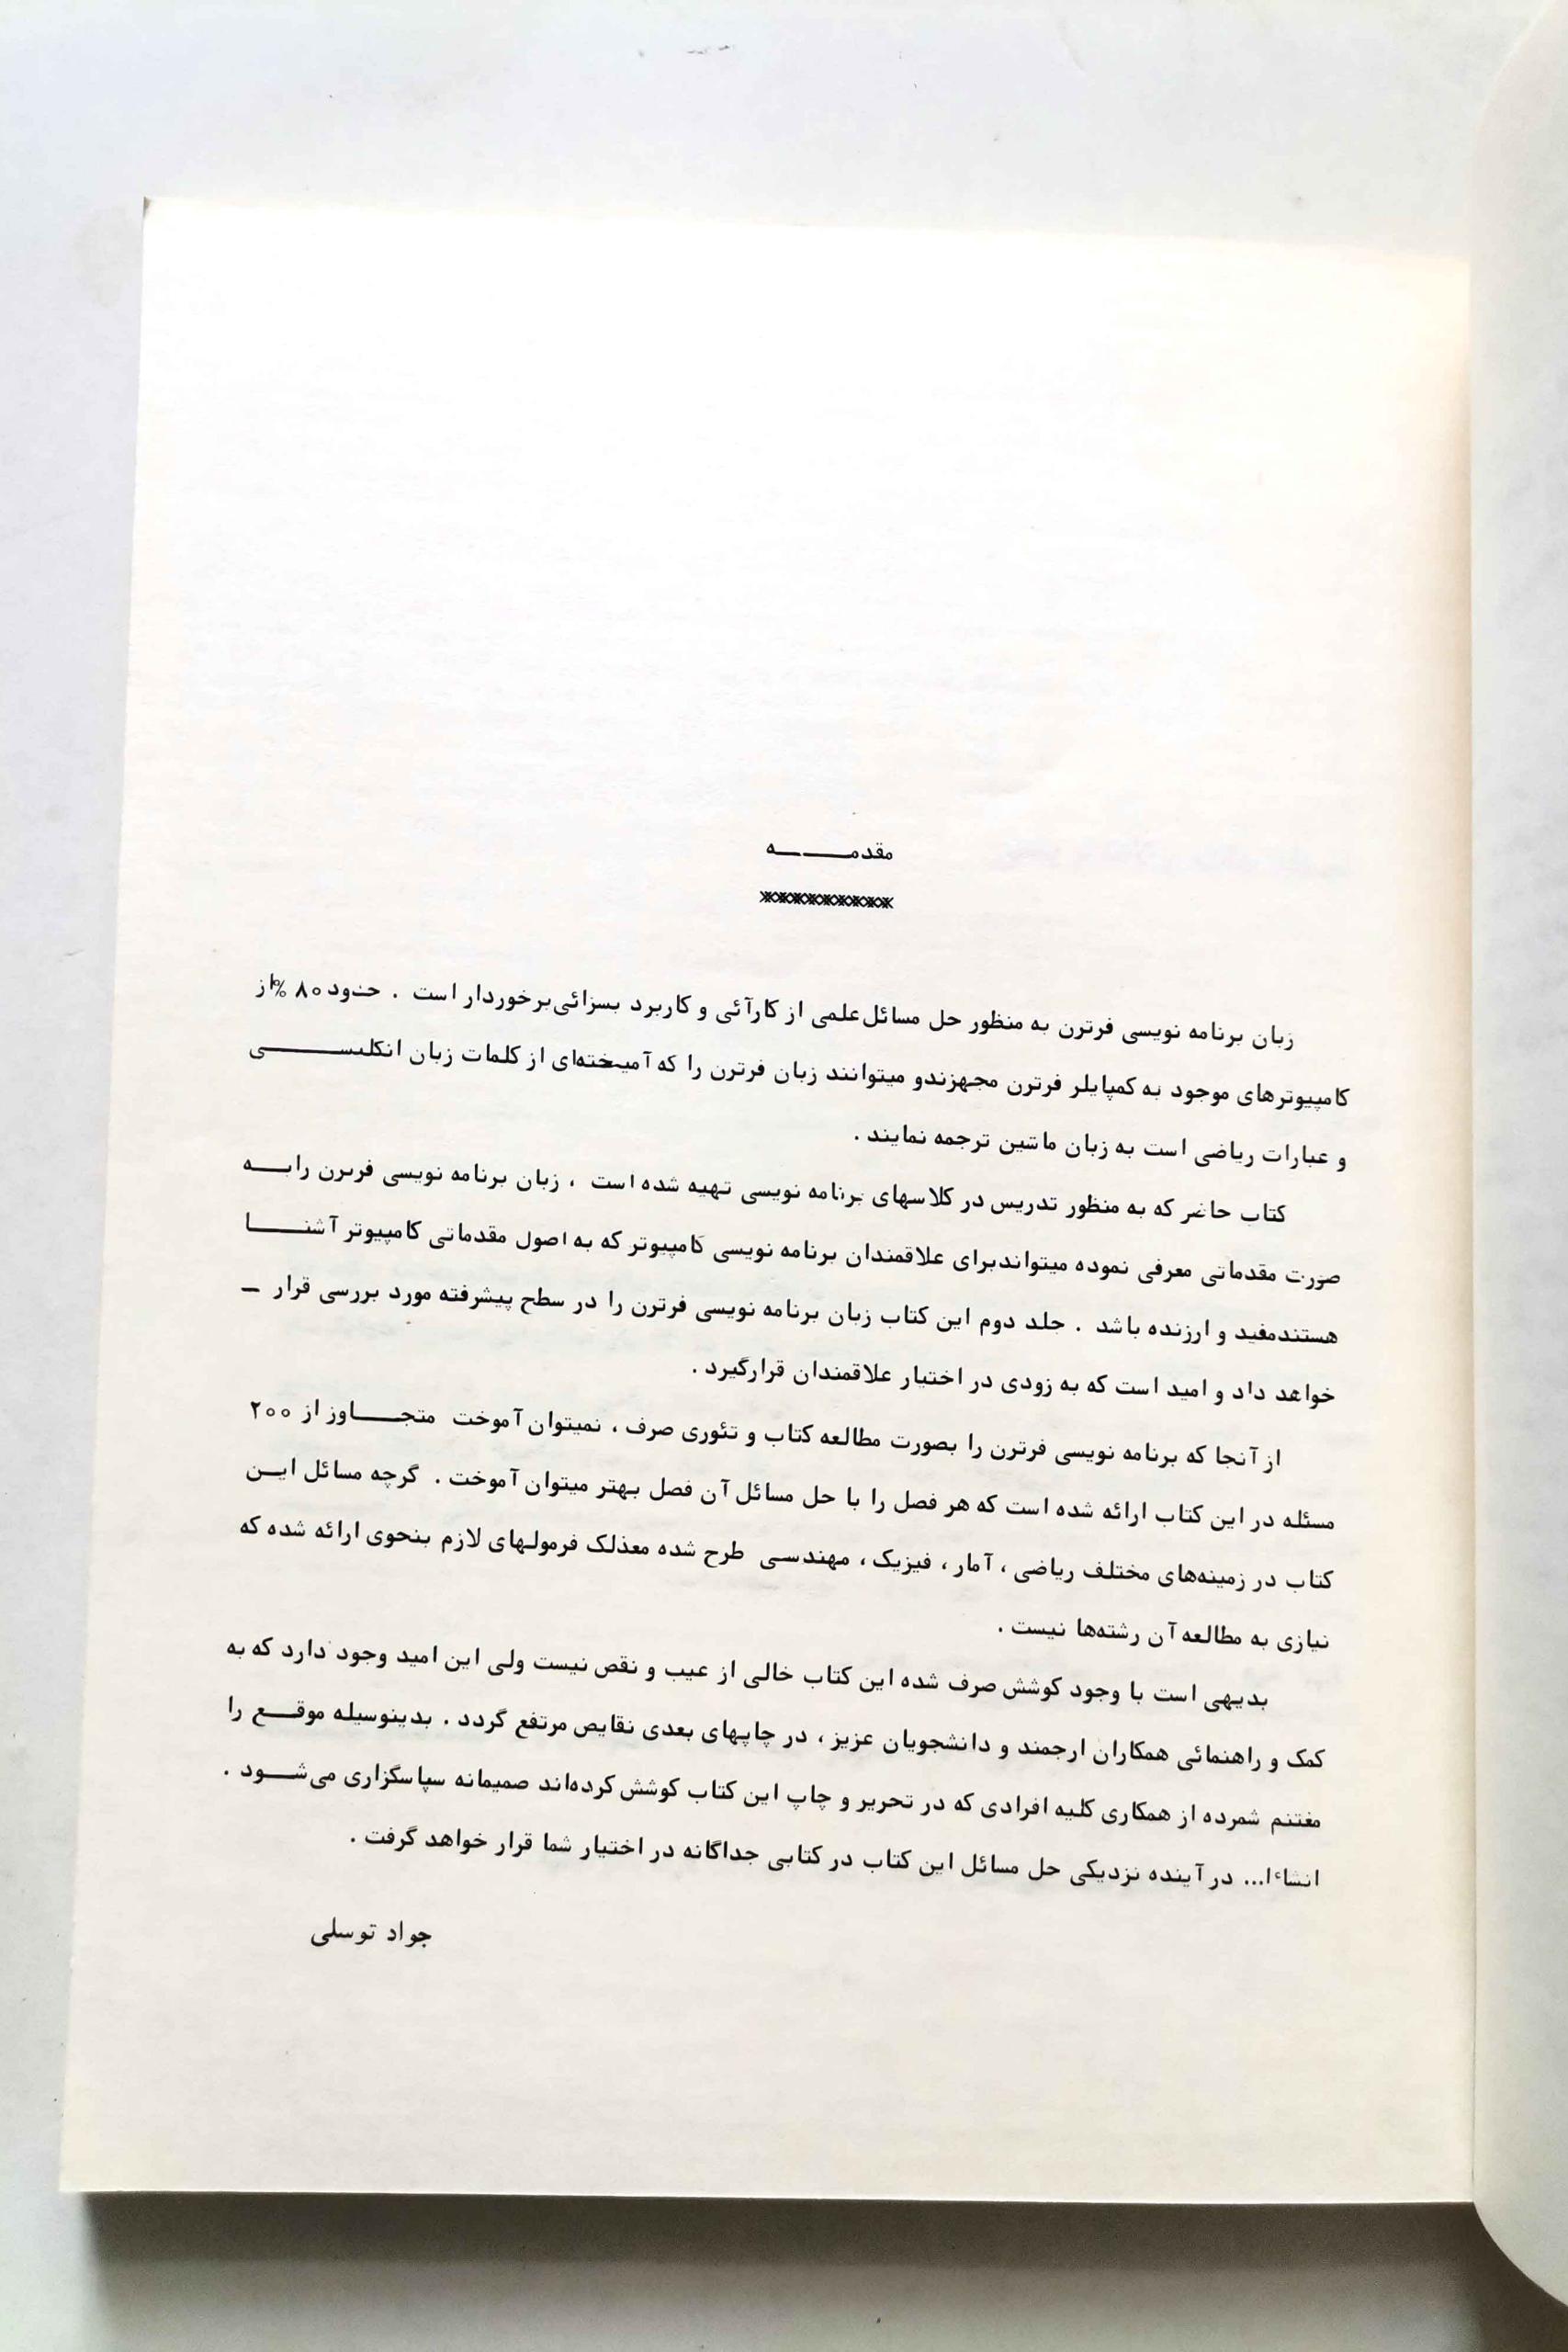 مقدمـــــه
××××××××××××
زبان برنامه نویسی فرترن به منظور حل مسائل علمی از کارآئی و کاربرد بسزائی برخوردار است . حدود ۸۰ %از
کامپیوترهای موجود به کمپایلر فرترن مجهزندو میتوانند زبان فرترن را که آمیخته‌ای از کلمات زبان انکلیســـــی
و عبارات ریاضی است به زبان ماشین ترجمه نمایند .
کتاب حاضر که به منظور تدریس در کلاسهای برنامه نویسی تهیه شده است ، زبان برنامه نویسی فرترن رابـــه
صورت مقدماتی معرفی نموده میتواندبرای علاقمندان برنامه نویسی کامپیوتر که به اصول مقدماتی کامپیوتر آشنـــــا
هستندمفید و ارزنده باشد . جلد دوم این کتاب زبان برنامه نویسی فرترن را در سطح پیشرفته مورد بررسی قرار ـ
خواهد داد و امید است که به زودی در اختیار علاقمندان قرارگیرد .
از آنجا که برنامه نویسی فرترن را بصورت مطالعه کتاب و تئوری صرف ، نمیتوان آموخت متجـــــاوز از ۲۰۰
مسئله در این کتاب ارائه شده است که هر فصل را با حل مسائل آن فصل بهتر میتوان آموخت . گرچه مسائل ایــن
کتاب در زمینه‌های مختلف ریاضی ، آمار ، فیزیک ، مهندسی طرح شده معذلک فرمولهای لازم بنحوی ارائه شده که
نیازی به مطالعه آن رشته‌ها نیست .
بدیهی است با وجود کوشش صرف شده این کتاب خالی از عیب و نقص نیست ولی این امید وجود دارد که به
کمک و راهنمائی همکاران ارجمند و دانشجویان عزیز ، در چاپهای بعدی نقایص مرتفع گردد . بدینوسیله موقـــع را
مغتنم شمرده از همکاری کلیه افرادی که در تحریر و چاپ این کتاب کوشش کرده‌اند صمیمانه سپاسگزاری می‌شـــود .
انشاءا... در آینده نزدیکی حل مسائل این کتاب در کتابی جداگانه در اختیار شما قرار خواهد گرفت .
جواد توسلی